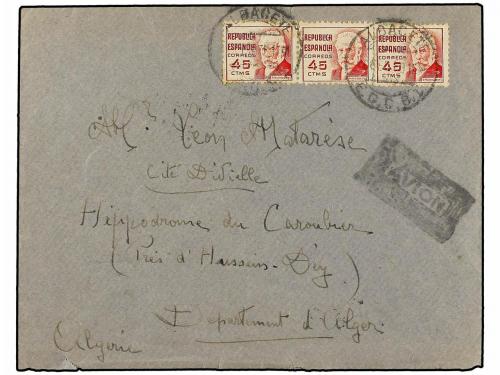 ALBACETE
REPUBLICA ESPAÑOLA
CORREOS
45 CTMS
REPUBLICA ESPAÑOLA
CORREOS
45 CTMS
REPUBLICA ESPAÑOLA
CORREOS
45 CTMS
AVION
M. Léon Matarèse
Cité Divielle
Hippodrome du Caroubier
(Près d'Hussein-Dey)
Departement d'Alger
Algérie